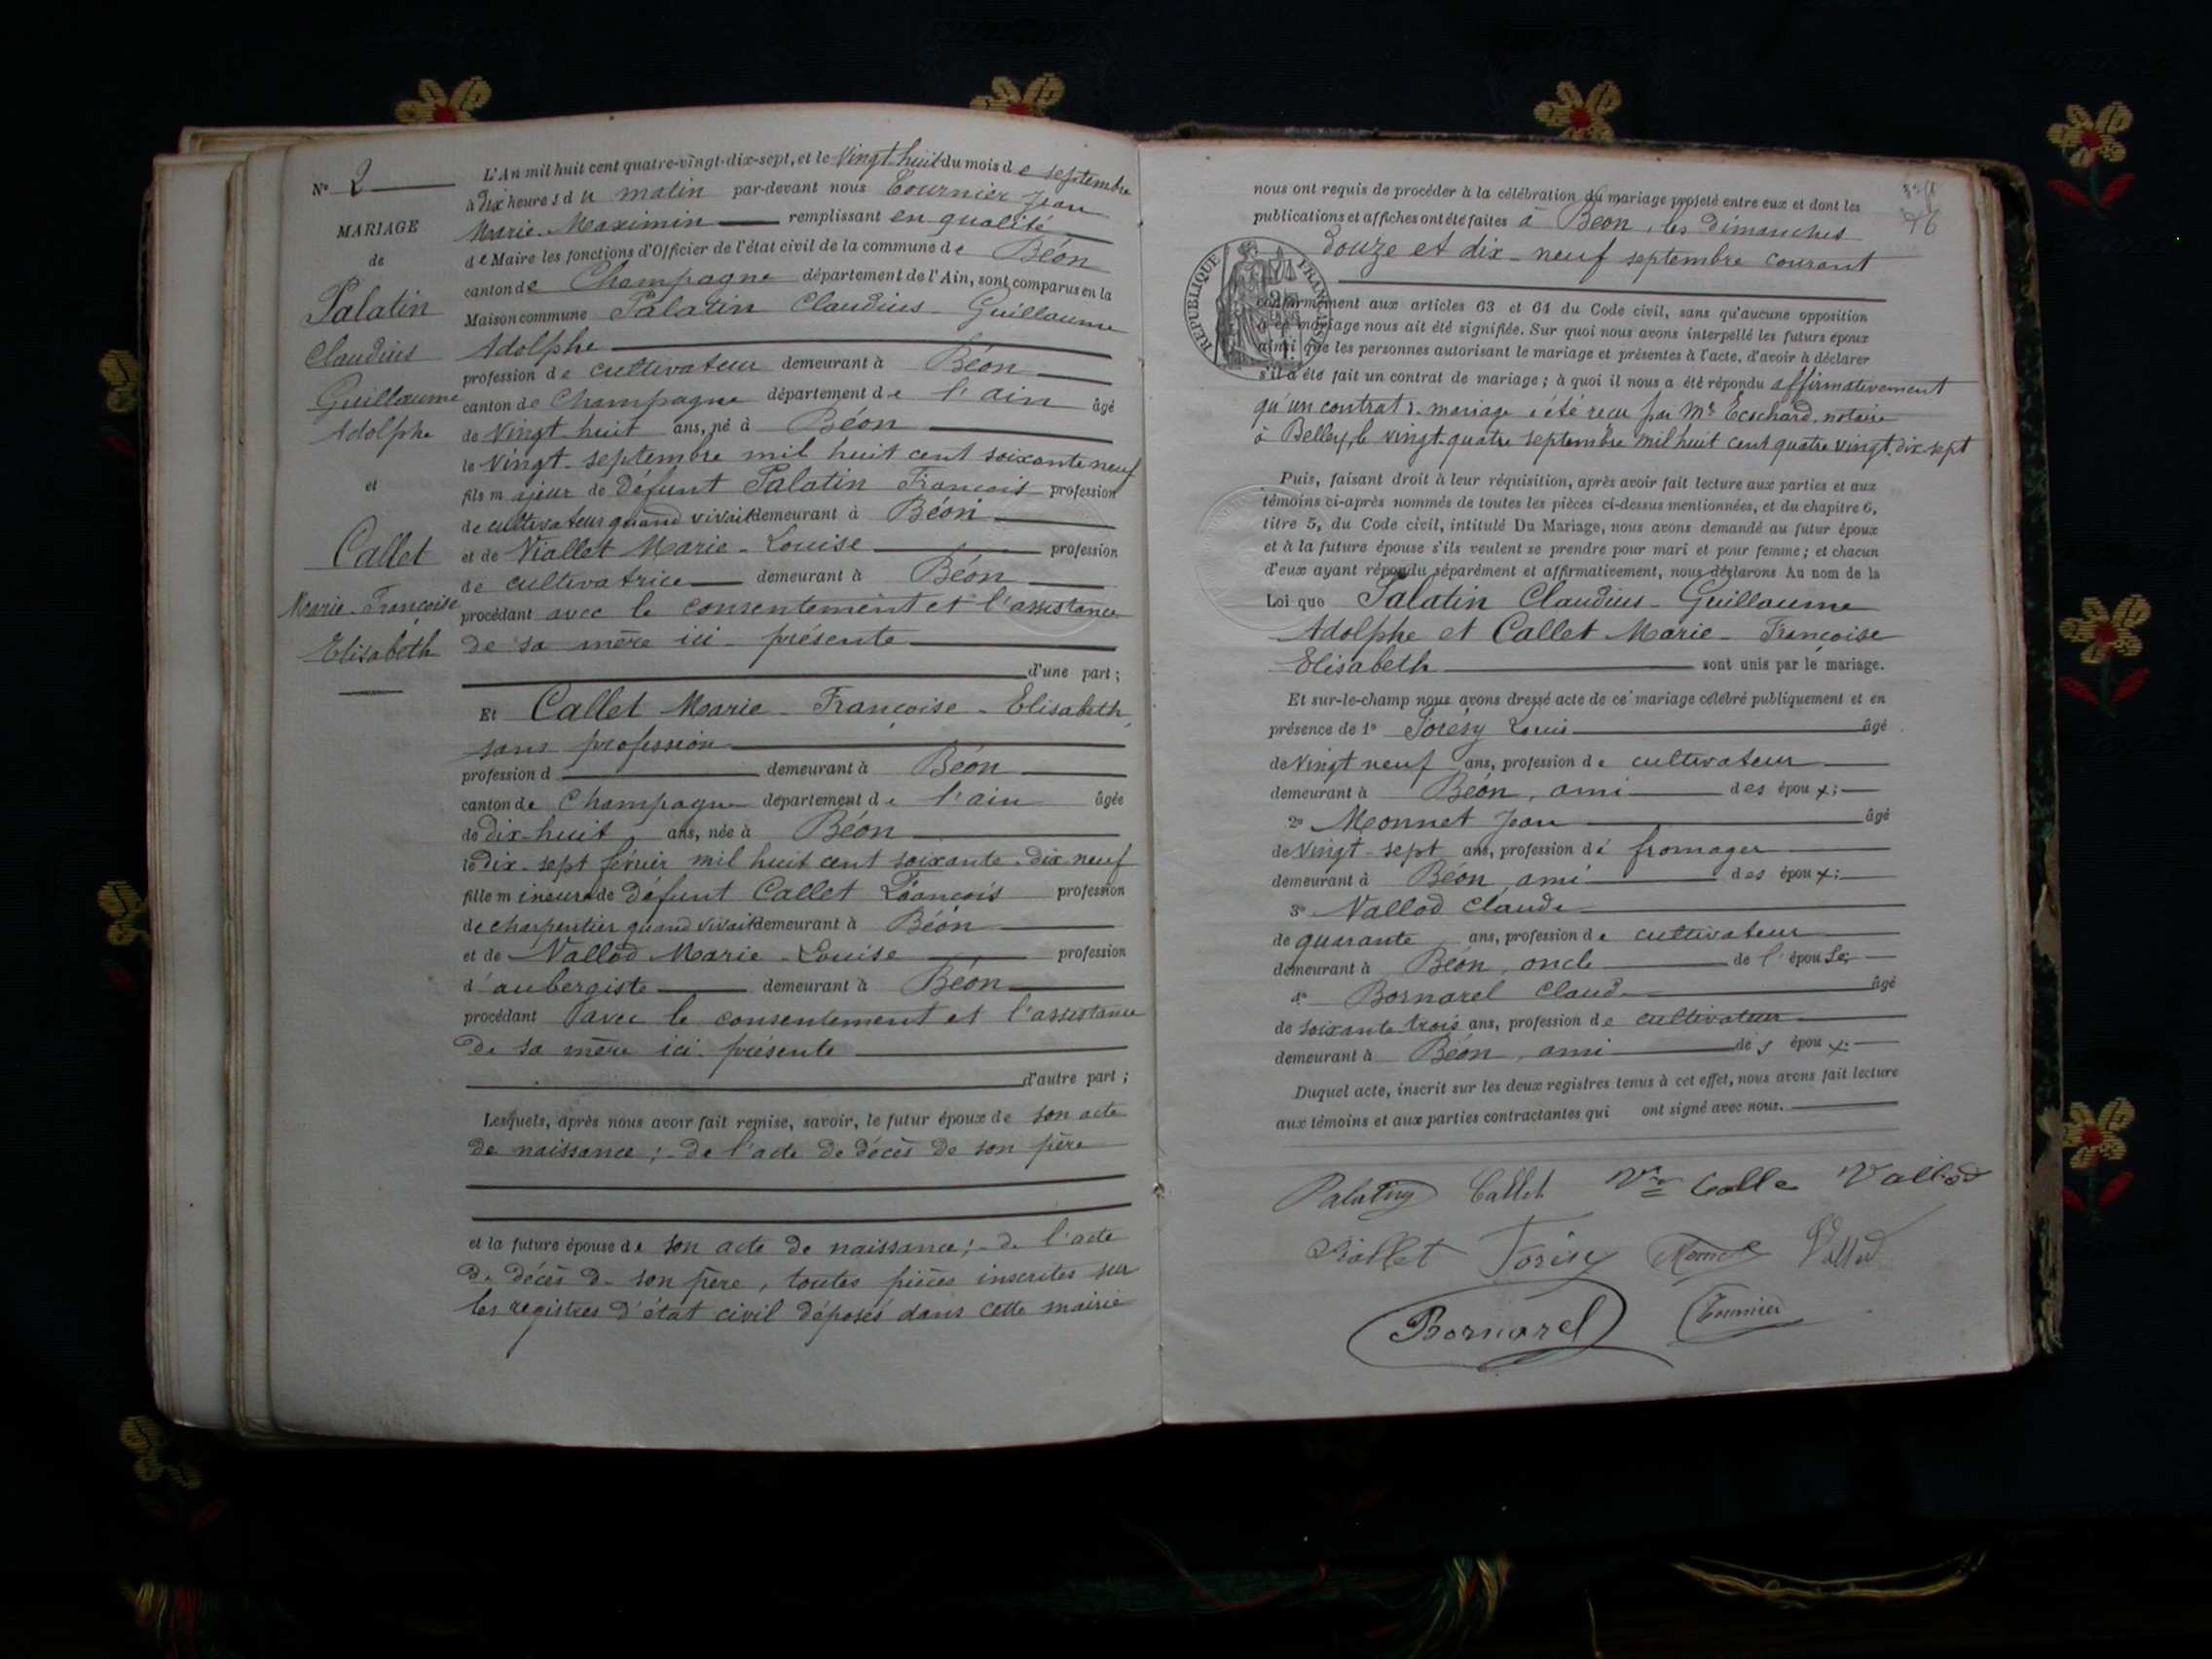 N° 2
MARIAGE
de
Palatin
Claudius
Guillaume
Adolphe
et
Callet
Marie-Françoise
Elisabeth
L'An mil huit cent quatre-vingt-dix-sept, et le vingt huit du mois de septembre
à dix heures du matin par-devant nous Tournier Jean
Marie-Maximin remplissant en qualité
de Maire les fonctions d'Officier de l'état civil de la commune de Béon
canton de Champagne département de l'Ain, sont comparus en la
Maison commune Palatin Claudius-Guillaume
Adolphe
profession de cultivateur demeurant à Béon
canton de Champagne département de l'ain âgé
de vingt-huit ans, né à Béon
le vingt-septembre mil huit cent soixante neuf
fils majeur de défunt Palatin François profession
de cultivateur quand vivait demeurant à Béon
et de Viallet Marie-Louise profession
de cultivatrice demeurant à Béon
procédant avec le consentement et l'assistance
de sa mère ici-présente
d'une part;
Et Callet Marie-Françoise-Elisabeth
sans profession
profession d demeurant à Béon
canton de Champagne département de l'ain âgée
de dix-huit ans, née à Béon
le dix-sept février mil huit cent soixante-dix neuf
fille mineure de défunt Callet François profession
de charpentier quand vivait demeurant à Béon
et de Vallod Marie-Louise profession
d'aubergiste demeurant à Béon
procédant avec le consentement et l'assistance
de sa mère ici présente
d'autre part;
Lesquels, après nous avoir fait remise, savoir, le futur époux de son acte
de naissance;-de l'acte de décès de son père
et la future épouse de son acte de naissance;-de l'acte
de décès de son père, toutes pièces inscrites sur
les registres d'état civil déposés dans cette mairie
nous ont requis de procéder à la célébration du mariage projeté entre eux et dont les
publications et affiches ont été faites à Béon, les dimanches
douze et dix-neuf septembre courant
REPUBLIQUE FRANÇAISE
conformément aux articles 63 et 64 du Code civil, sans qu'aucune opposition
à ce mariage nous ait été signifiée. Sur quoi nous avons interpellé les futurs époux
ainsi que les personnes autorisant le mariage et présentes à l'acte, d'avoir à déclarer
s'il a été fait un contrat de mariage; à quoi il nous a été répondu affirmativement
qu'un contrat de mariage a été reçu par Me Ecochard, notaire
à Belley, le vingt-quatre septembre mil huit cent quatre vingt dix-sept
Puis, faisant droit à leur réquisition, après avoir fait lecture aux parties et aux
témoins ci-après nommés de toutes les pièces ci-dessus mentionnées, et du chapitre 6,
titre 5, du Code civil, intitulé Du Mariage, nous avons demandé au futur époux
et à la future épouse s'ils veulent se prendre pour mari et pour femme; et chacun
d'eux ayant répondu séparément et affirmativement, nous déclarons Au nom de la
Loi que Palatin Claudius-Guillaume
Adolphe et Callet Marie-Françoise
Elisabeth sont unis par le mariage.
Et sur-le-champ nous avons dressé acte de ce mariage célébré publiquement et en
présence de 1° Louis âgé
de vingt neuf ans, profession de cultivateur
demeurant à Béon, ami des époux;
2° Monnet Jean âgé
de vingt-sept ans, profession de fromager
demeurant à Béon, ami des époux;
3° Vallod Claude
de quarante ans, profession de cultivateur
demeurant à Béon, oncle de l'épouse;
4° Bornarel Claude âgé
de soixante trois ans, profession de cultivateur
demeurant à Béon, ami des époux.
Duquel acte, inscrit sur les deux registres tenus à cet effet, nous avons fait lecture
aux témoins et aux parties contractantes qui ont signé avec nous.
Palatin Callet Vve Vallod
Viallet Vallod
Bornarel Tournier